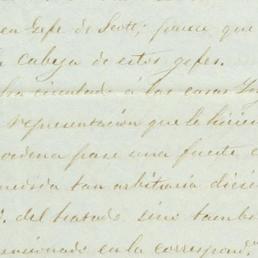 en Gefe de Scott; parece, que
la cabeza de estos gefes.
ha circulado á las casas
representación que le hicie
ordena pase una fuerte
tan arbitraria dicie
del tratado sino tambi
sancionado en la correspond.